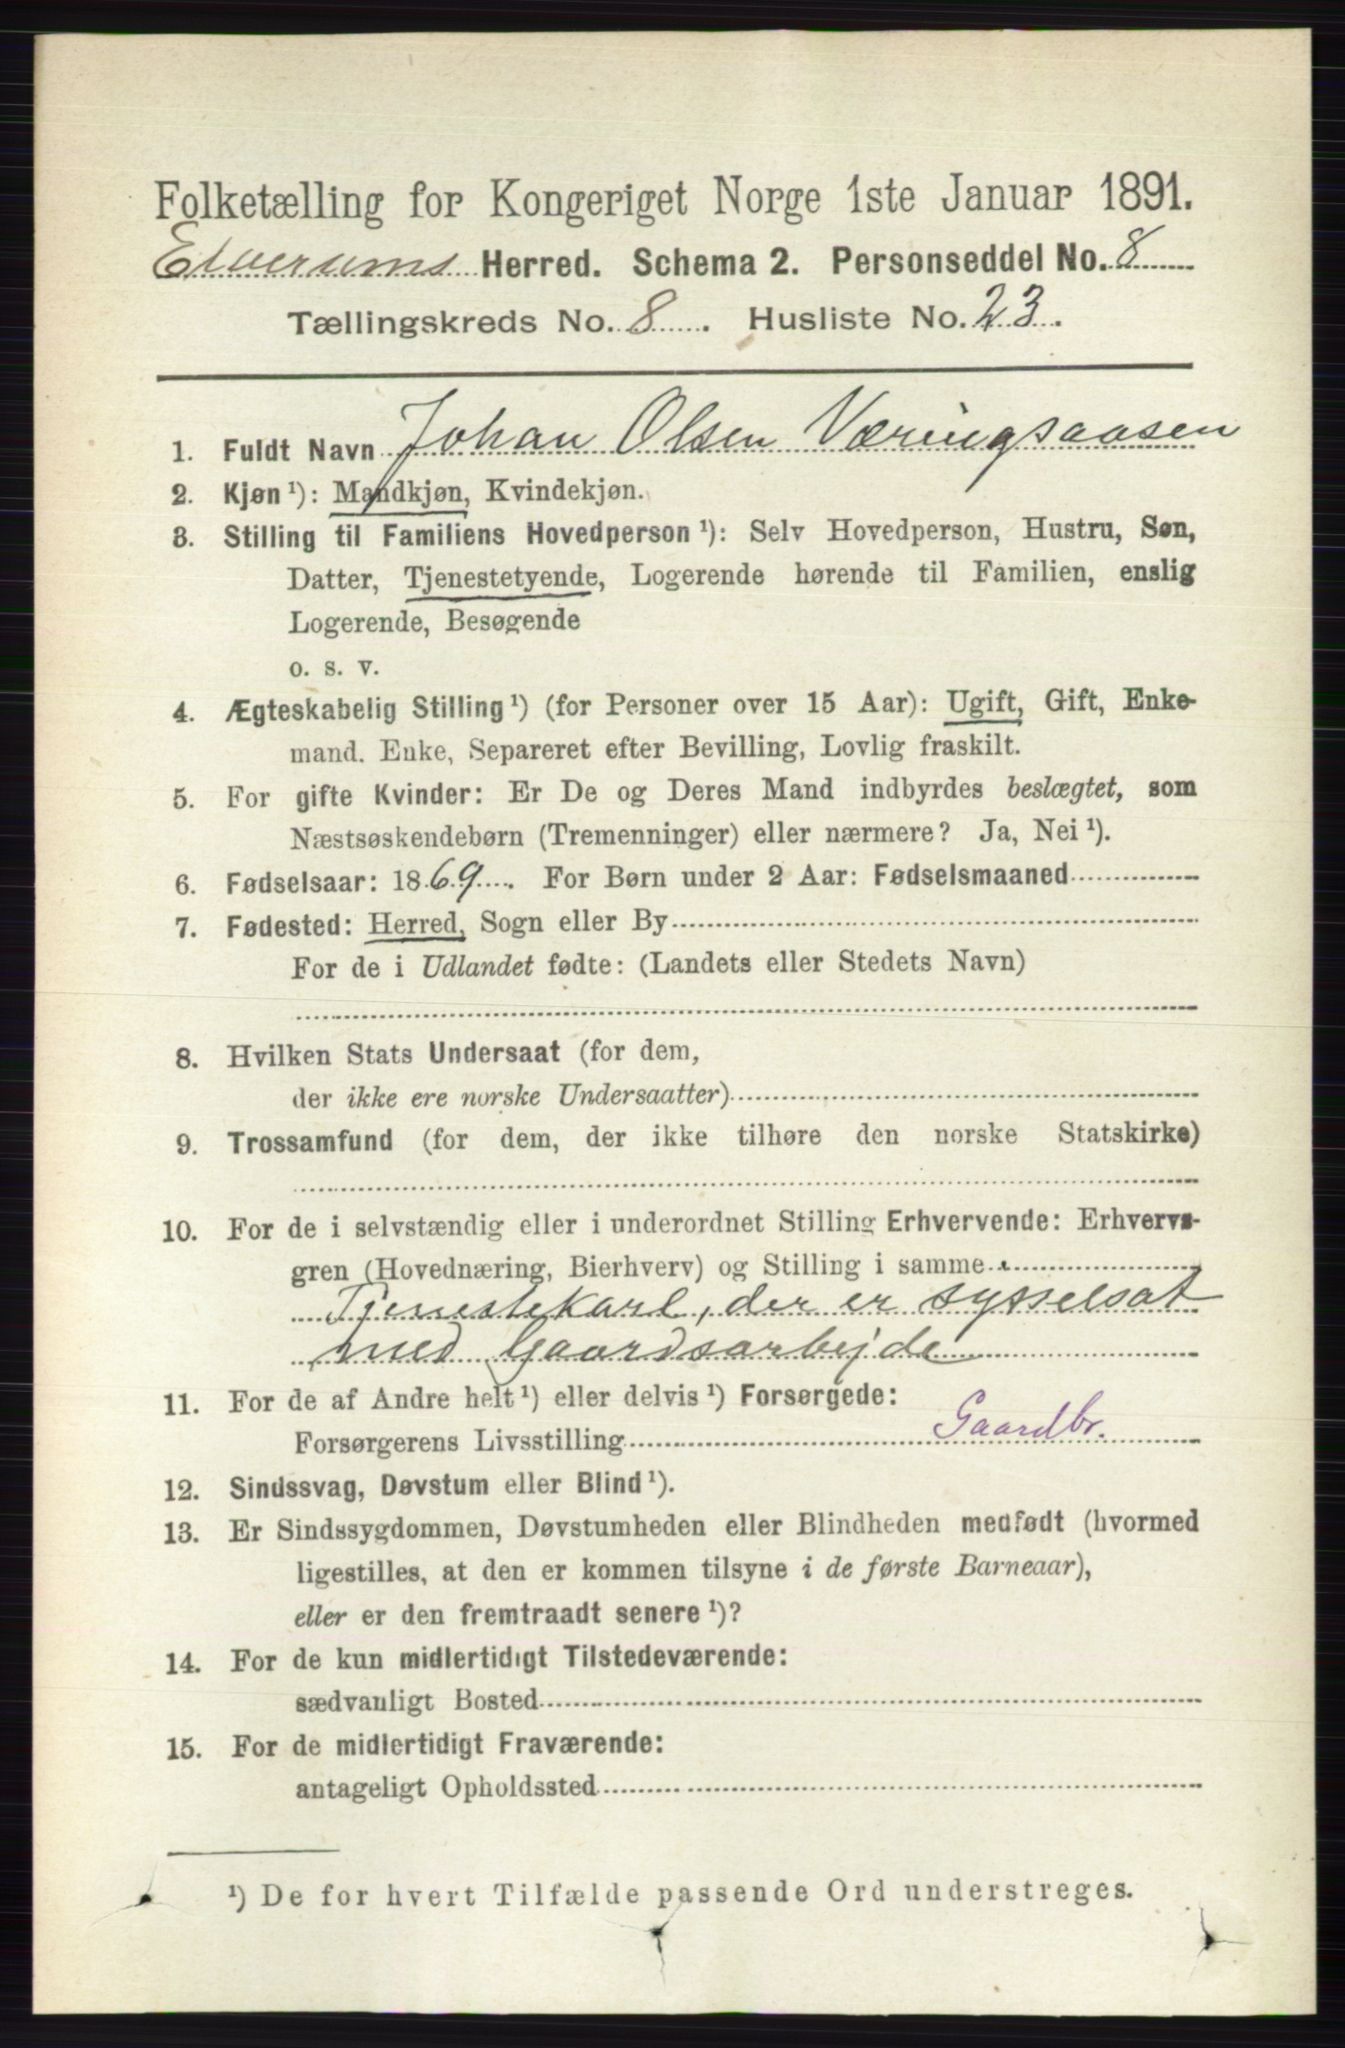 Folketælling for Kongeriget Norge 1ste Januar 1891.
Elverums Herred. Schema 2. Personseddel No. 8
Tællingskreds No. 8. Husliste No. 23.
1. Fuldt Navn Johan Olsen Væringsaasen
2. Kjøn¹): Mandkjøn, Kvindekjøn.
3. Stilling til Familiens Hovedperson¹): Selv Hovedperson, Hustru, Søn,
Datter, Tjenestetyende, Logerende hørende til Familien, enslig
Logerende, Besøgende
o. s. v.
4. Ægteskabelig Stilling¹) (for Personer over 15 Aar): Ugift, Gift, Enke-
mand. Enke, Separeret efter Bevilling, Lovlig fraskilt.
5. For gifte Kvinder: Er De og Deres Mand indbyrdes beslægtet, som
Næstsøskendebørn (Tremenninger) eller nærmere? Ja, Nei¹).
6. Fødselsaar: 1869. For Børn under 2 Aar: Fødselsmaaned
7. Fødested: Herred, Sogn eller By
For de i Udlandet fødte: (Landets eller Stedets Navn)
8. Hvilken Stats Undersaat (for dem,
der ikke ere norske Undersaatter)
9. Trossamfund (for dem, der ikke tilhøre den norske Statskirke)
10. For de i selvstændig eller i underordnet Stilling Erhvervende: Erhvervs-
gren (Hovednæring, Bierhverv) og Stilling i samme
Tjenestekarl, der er sysselsat
med Gaardsarbejde
11. For de af Andre helt¹) eller delvis¹) Forsørgede:
Forsørgerens Livsstilling Gaardbr.
12. Sindssvag, Døvstum eller Blind¹).
13. Er Sindssygdommen, Døvstumheden eller Blindheden medfødt (hvormed
ligestilles, at den er kommen tilsyne i de første Barneaar),
eller er den fremtraadt senere¹)?
14. For de kun midlertidigt Tilstedeværende:
sædvanligt Bosted
15. For de midlertidigt Fraværende:
antageligt Opholdssted
¹) De for hvert Tilfælde passende Ord understreges.